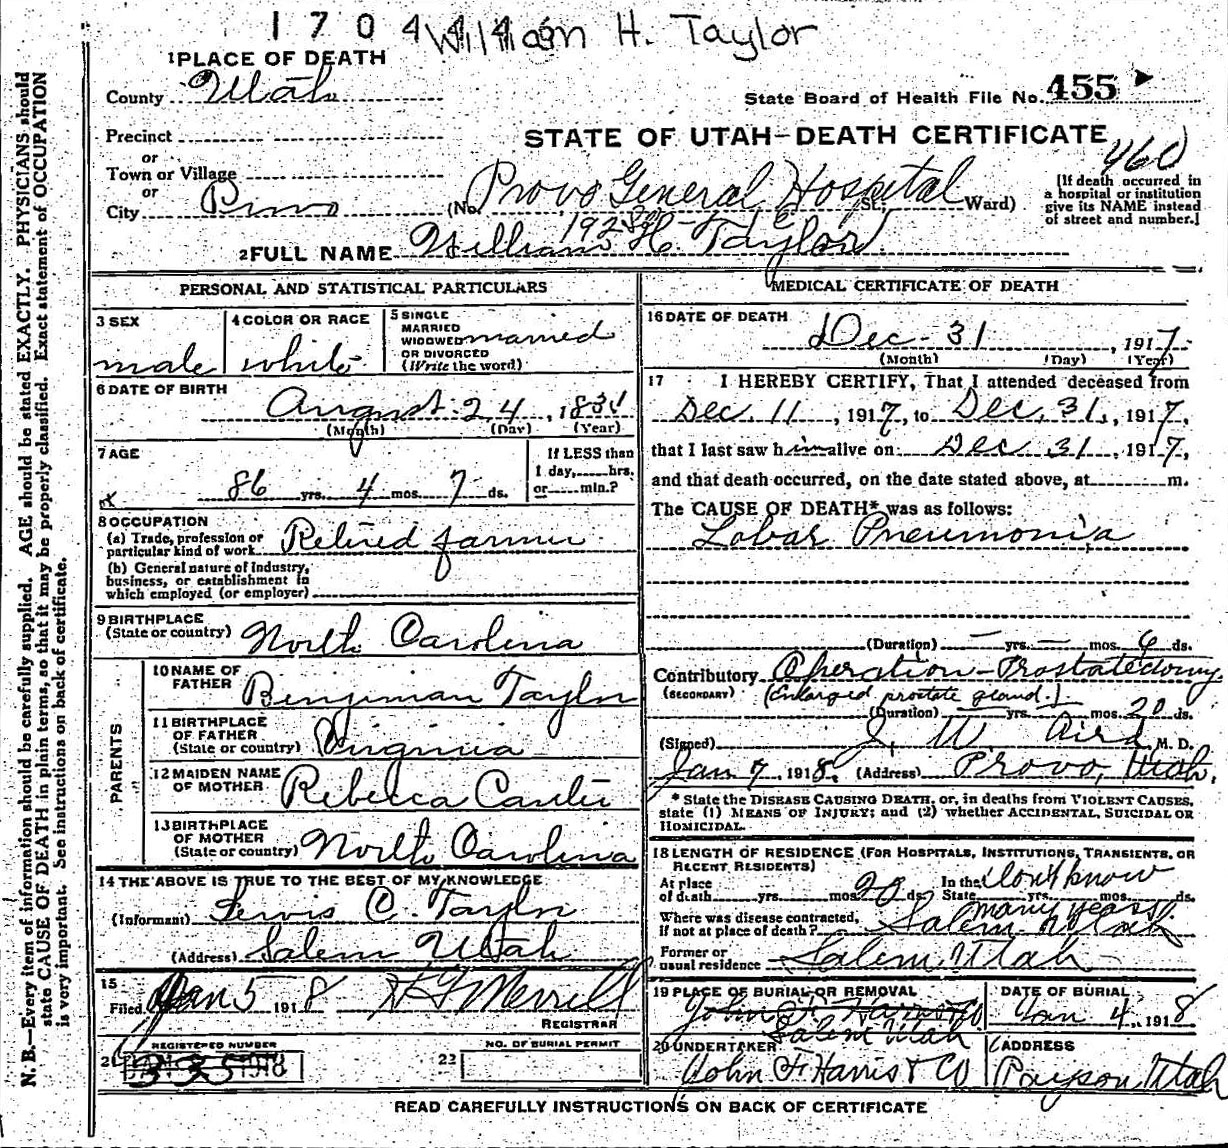 1 7 0 4 4 4 6
William H. Taylor
1 PLACE OF DEATH
County Utah
State Board of Health File No. 455
Precinct
STATE OF UTAH—DEATH CERTIFICATE
460
or
Town or Village
or
City Provo (No. Provo General Hospital St.; Ward)
[If death occurred in
a hospital or institution
give its NAME instead
of street and number.]
2 FULL NAME William H. Taylor
PERSONAL AND STATISTICAL PARTICULARS
3 SEX
male
4 COLOR OR RACE
white
5 SINGLE
MARRIED
WIDOWED
OR DIVORCED
(Write the word)
married
6 DATE OF BIRTH
August 24, 1831
(Month) (Day) (Year)
7 AGE
86 yrs. 4 mos. 7 ds.
If LESS than
1 day, hrs.
or min.?
8 OCCUPATION
(a) Trade, profession or
particular kind of work Retired farmer
(b) General nature of Industry,
business, or establishment in
which employed (or employer)
9 BIRTHPLACE
(State or country) North Carolina
PARENTS
10 NAME OF
FATHER Benjiman Taylor
11 BIRTHPLACE
OF FATHER
(State or country) Virginia
12 MAIDEN NAME
OF MOTHER Rebecca Canter
13 BIRTHPLACE
OF MOTHER
(State or country) North Carolina
14 THE ABOVE IS TRUE TO THE BEST OF MY KNOWLEDGE
(Informant) Lewis C. Taylor
(Address) Salem Utah
15
Filed Jan 5 1918 H F Merrill
REGISTRAR
REGISTERED NUMBER
21 335
22 NO. OF BURIAL PERMIT
MEDICAL CERTIFICATE OF DEATH
16 DATE OF DEATH
Dec. 31, 1917
(Month) (Day) (Year)
17 I HEREBY CERTIFY, That I attended deceased from
Dec. 11, 1917, to Dec. 31, 1917,
that I last saw him alive on Dec 31, 1917,
and that death occurred, on the date stated above, at m.
The CAUSE OF DEATH* was as follows:
Lobar Pneumonia
(Duration) — yrs. — mos. 6 ds.
Contributory Operation - Prostatedomy.
(SECONDARY) (Enlarged prostate gland.)
(Duration) yrs. mos. 20 ds.
(Signed) J. W. Aird M. D.
Jan 7, 1918. (Address) Provo, Utah.
* State the DISEASE CAUSING DEATH, or, in deaths from VIOLENT CAUSES,
state (1) MEANS OF INJURY; and (2) whether ACCIDENTAL, SUICIDAL OR
HOMICIDAL.
18 LENGTH OF RESIDENCE (FOR HOSPITALS, INSTITUTIONS, TRANSIENTS, OR
RECENT RESIDENTS)
At place
of death yrs. mos. 20 ds.
In the
State yrs. mos. ds.
don't know
many years
Where was disease contracted,
If not at place of death? Salem Utah
Former or
usual residence Salem, Utah
19 PLACE OF BURIAL OR REMOVAL
Salem Utah
DATE OF BURIAL
Jan 4, 1918
20 UNDERTAKER
John F. Harris & Co
ADDRESS
Payson, Utah
READ CAREFULLY INSTRUCTIONS ON BACK OF CERTIFICATE
N. B.—Every item of information should be carefully supplied. AGE should be stated EXACTLY. PHYSICIANS should
state CAUSE OF DEATH in plain terms, so that it may be properly classified. Exact statement of OCCUPATION
is very important. See instructions on back of certificate.